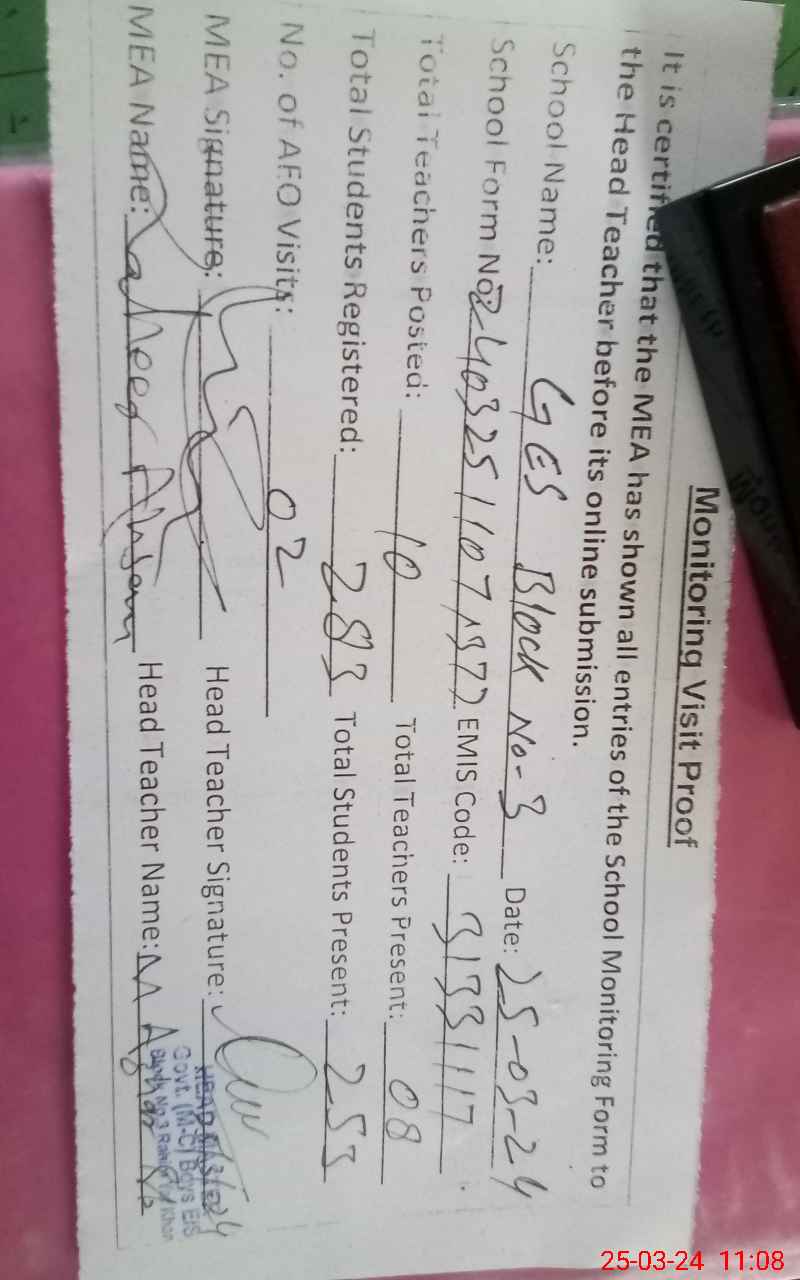 Monitoring Visit Proof
It is certified that the MEA has shown all entries of the School Monitoring Form to
the Head Teacher before its online submission.
School Name: GES Block No-3 Date: 25-03-24
School Form No: EMIS Code: 31331117
Total Teachers Posted: 10 Total Teachers Present: 08
Total Students Registered: 283 Total Students Present: 253
No. of AEO Visits: 02
MEA Signature: Head Teacher Signature:
MEA Name: Head Teacher Name: M
HEAD MASTER
Govt. (M-C) Boys E/S
Block No 3
25-03-24 11:08